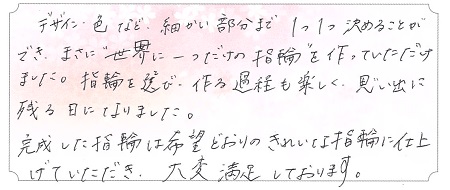 デザイン・色など、細かい部分まで1つ1つ決めることが
でき、まさに"世界に一つだけの指輪"を作っていただけ
ました。指輪を選び、作る過程も楽しく、思い出に
残る日になりました。
完成した指輪は希望どおりのきれいな指輪に仕上
げていただき、大変満足しております。